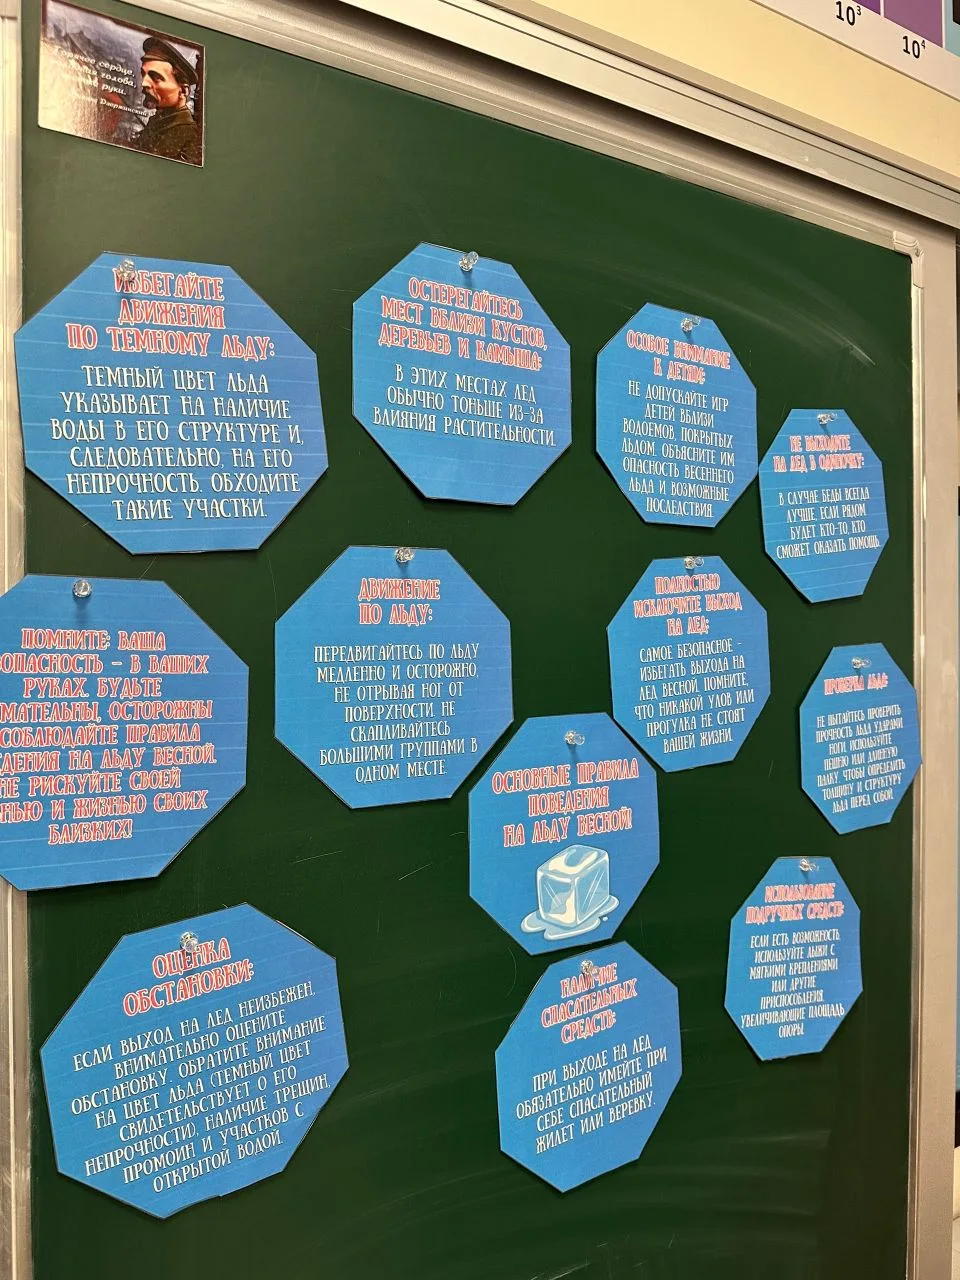 10³
10⁴
Горячее сердце,
голова,
руки.
Дзержинский
ИЗБЕГАЙТЕ
ДВИЖЕНИЯ
ПО ТЕМНОМУ ЛЬДУ:
ТЕМНЫЙ ЦВЕТ ЛЬДА
УКАЗЫВАЕТ НА НАЛИЧИЕ
ВОДЫ В ЕГО СТРУКТУРЕ И,
СЛЕДОВАТЕЛЬНО, НА ЕГО
НЕПРОЧНОСТЬ. ОБХОДИТЕ
ТАКИЕ УЧАСТКИ.
ОСТЕРЕГАЙТЕСЬ
МЕСТ ВБЛИЗИ КУСТОВ,
ДЕРЕВЬЕВ И КАМЫША:
В ЭТИХ МЕСТАХ ЛЕД
ОБЫЧНО ТОНЬШЕ ИЗ-ЗА
ВЛИЯНИЯ РАСТИТЕЛЬНОСТИ.
ОСОБОЕ ВНИМАНИЕ
К ДЕТЯМ:
НЕ ДОПУСКАЙТЕ ИГР
ДЕТЕЙ ВБЛИЗИ
ВОДОЕМОВ, ПОКРЫТЫХ
ЛЬДОМ. ОБЪЯСНИТЕ ИМ
ОПАСНОСТЬ ВЕСЕННЕГО
ЛЬДА И ВОЗМОЖНЫЕ
ПОСЛЕДСТВИЯ.
НЕ ВЫХОДИТЕ
НА ЛЕД В ОДИНОЧКУ:
В СЛУЧАЕ БЕДЫ ВСЕГДА
ЛУЧШЕ, ЕСЛИ РЯДОМ
БУДЕТ КТО-ТО, КТО
СМОЖЕТ ОКАЗАТЬ ПОМОЩЬ.
ПОМНИТЕ: ВАША
ОПАСНОСТЬ – В ВАШИХ
РУКАХ. БУДЬТЕ
МАТЕЛЬНЫ, ОСТОРОЖНЫ
СОБЛЮДАЙТЕ ПРАВИЛА
ДЕНИЯ НА ЛЬДУ ВЕСНОЙ.
НЕ РИСКУЙТЕ СВОЕЙ
НЬЮ И ЖИЗНЬЮ СВОИХ
БЛИЗКИХ!
ДВИЖЕНИЕ
ПО ЛЬДУ:
ПЕРЕДВИГАЙТЕСЬ ПО ЛЬДУ
МЕДЛЕННО И ОСТОРОЖНО,
НЕ ОТРЫВАЯ НОГ ОТ
ПОВЕРХНОСТИ. НЕ
СКАПЛИВАЙТЕСЬ
БОЛЬШИМИ ГРУППАМИ В
ОДНОМ МЕСТЕ.
ПОЛНОСТЬЮ
ИСКЛЮЧИТЕ ВЫХОД
НА ЛЕД:
САМОЕ БЕЗОПАСНОЕ –
ИЗБЕГАТЬ ВЫХОДА НА
ЛЕД ВЕСНОЙ. ПОМНИТЕ,
ЧТО НИКАКОЙ УЛОВ ИЛИ
ПРОГУЛКА НЕ СТОЯТ
ВАШЕЙ ЖИЗНИ.
ПРОВЕРКА ЛЬДА:
НЕ ПЫТАЙТЕСЬ ПРОВЕРИТЬ
ПРОЧНОСТЬ ЛЬДА УДАРАМИ
НОГИ. ИСПОЛЬЗУЙТЕ
ПЕШНЮ ИЛИ ДЛИННУЮ
ПАЛКУ, ЧТОБЫ ОПРЕДЕЛИТЬ
ТОЛЩИНУ И СТРУКТУРУ
ЛЬДА ПЕРЕД СОБОЙ.
ОСНОВНЫЕ ПРАВИЛА
ПОВЕДЕНИЯ
НА ЛЬДУ ВЕСНОЙ!
ИСПОЛЬЗОВАНИЕ
ПОДРУЧНЫХ СРЕДСТВ:
ЕСЛИ ЕСТЬ ВОЗМОЖНОСТЬ,
ИСПОЛЬЗУЙТЕ ЛЫЖИ С
МЯГКИМИ КРЕПЛЕНИЯМИ
ИЛИ ДРУГИЕ
ПРИСПОСОБЛЕНИЯ,
УВЕЛИЧИВАЮЩИЕ ПЛОЩАДЬ
ОПОРЫ.
ОЦЕНКА
ОБСТАНОВКИ:
ЕСЛИ ВЫХОД НА ЛЕД НЕИЗБЕЖЕН,
ВНИМАТЕЛЬНО ОЦЕНИТЕ
ОБСТАНОВКУ. ОБРАТИТЕ ВНИМАНИЕ
НА ЦВЕТ ЛЬДА (ТЕМНЫЙ ЦВЕТ
СВИДЕТЕЛЬСТВУЕТ О ЕГО
НЕПРОЧНОСТИ), НАЛИЧИЕ ТРЕЩИН,
ПРОМОИН И УЧАСТКОВ С
ОТКРЫТОЙ ВОДОЙ.
НАЛИЧИЕ
СПАСАТЕЛЬНЫХ
СРЕДСТВ:
ПРИ ВЫХОДЕ НА ЛЕД
ОБЯЗАТЕЛЬНО ИМЕЙТЕ ПРИ
СЕБЕ СПАСАТЕЛЬНЫЙ
ЖИЛЕТ ИЛИ ВЕРЕВКУ.